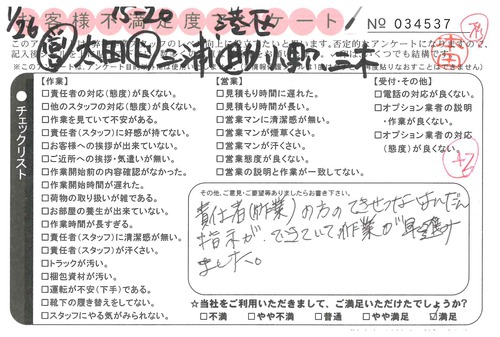 1/26 15-20 港区
お客様不満足度アンケート
No 034537
このアンケートは
否定的なアンケートになりますので、
記入後
いくつでも結構です。
チェックリスト
【作業】
□責任者の対応(態度)が良くない。
□他のスタッフの対応(態度)が良くない。
□作業を見ていて不安がある。
□責任者(スタッフ)に好感が持てない。
□お客様への挨拶が出来ていない。
□ご近所への挨拶・気遣いが無い。
□作業開始前の内容確認がなかった。
□作業開始時間が遅れた。
□荷物の取り扱いが雑である。
□お部屋の養生が出来ていない。
□作業時間が長すぎる。
□責任者(スタッフ)に清潔感が無い。
□責任者(スタッフ)が汗くさい。
□トラックが汚い。
□梱包資材が汚い。
□運転が不安(下手)である。
□靴下の履き替えをしてない。
□スタッフにやる気がみられない。
【営業】
□見積もり時間に遅れた。
□見積もり時間が長い。
□営業マンに清潔感が無い。
□営業マンが煙草くさい。
□営業マンが汗くさい。
□営業態度が良くない。
□営業の説明と作業が一致してない。
【受付・その他】
□電話の対応が良くない。
□オプション業者の説明
・作業が良くない。
□オプション業者の対応
(態度)が良くない。
その他、ご意見・ご要望等ありましたらお書き下さい。
責任者(作業)の方のてきせつなはんだん
指示が、できていて作業が早く
ました。
☆当社をご利用いただきまして、ご満足いただけたでしょうか?
□不満 □やや不満 □普通 □やや満足 ☑満足